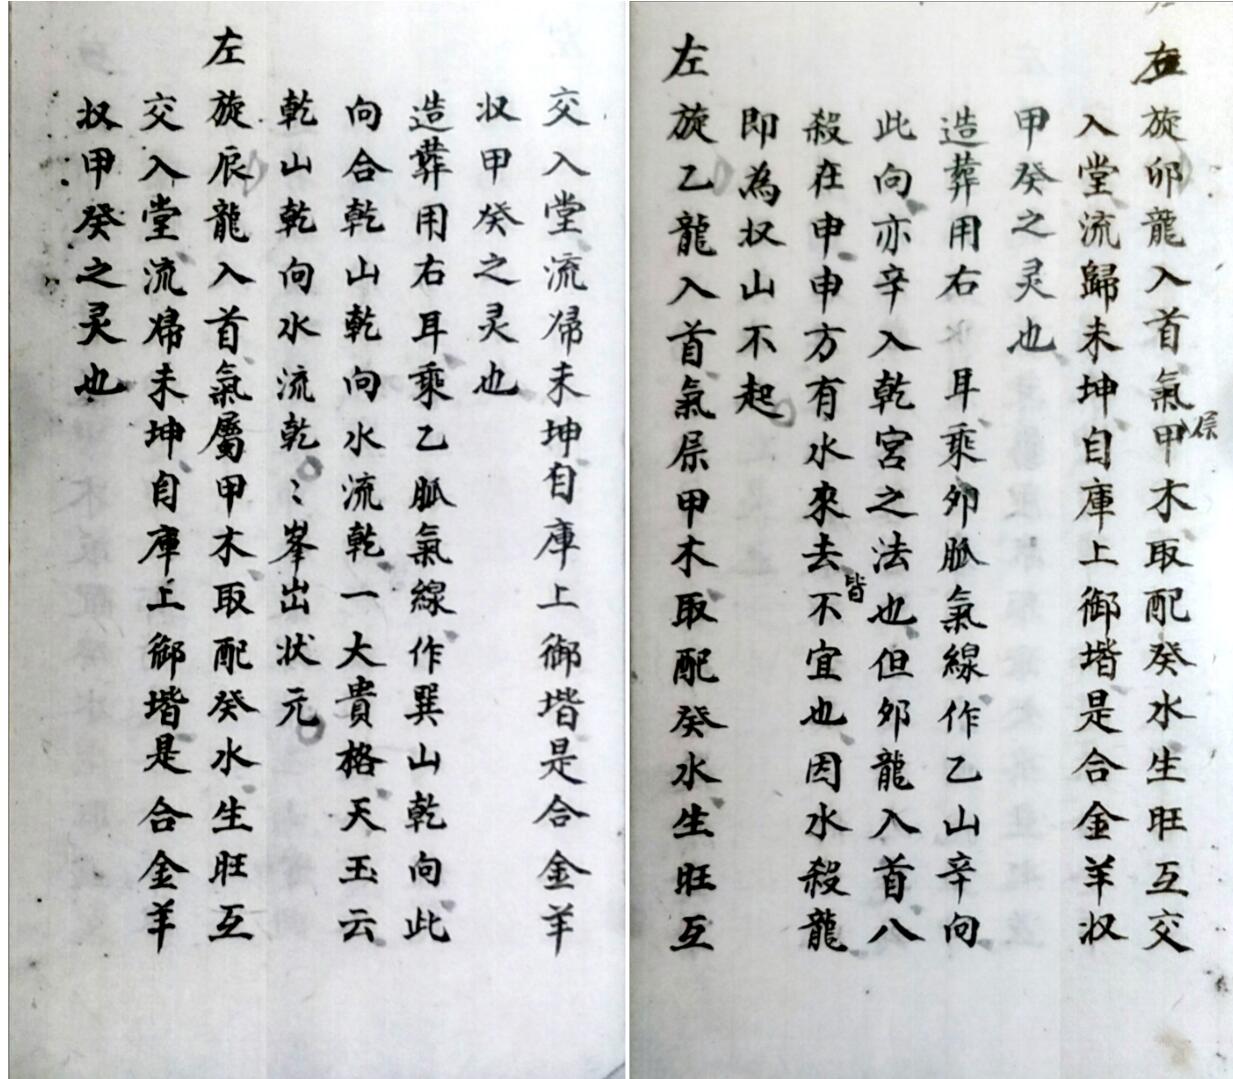 左旋卯龍入首氣屡甲木取配癸水生旺互交
入堂流歸未坤自庫上御堦是合金羊収
甲癸之灵也
造葬用右耳乘夘脈氣線作乙山辛向
此向亦辛入乾宮之法也但夘龍入首八
殺在申申方有水來去皆不宜也因水殺龍
即為収山不起
左旋乙龍入首氣屡甲木取配癸水生旺互
交入堂流帰未坤自庫上御堦是合金羊
収甲癸之灵也
造葬用右耳乘乙脈氣線作巽山乾向此
向合乾山乾向水流乾一大貴格天玉云
乾山乾向水流乾〻峯出状元
左旋辰龍入首氣屬甲木取配癸水生旺互
交入堂流帰未坤自庫上御堦是合金羊
収甲癸之灵也